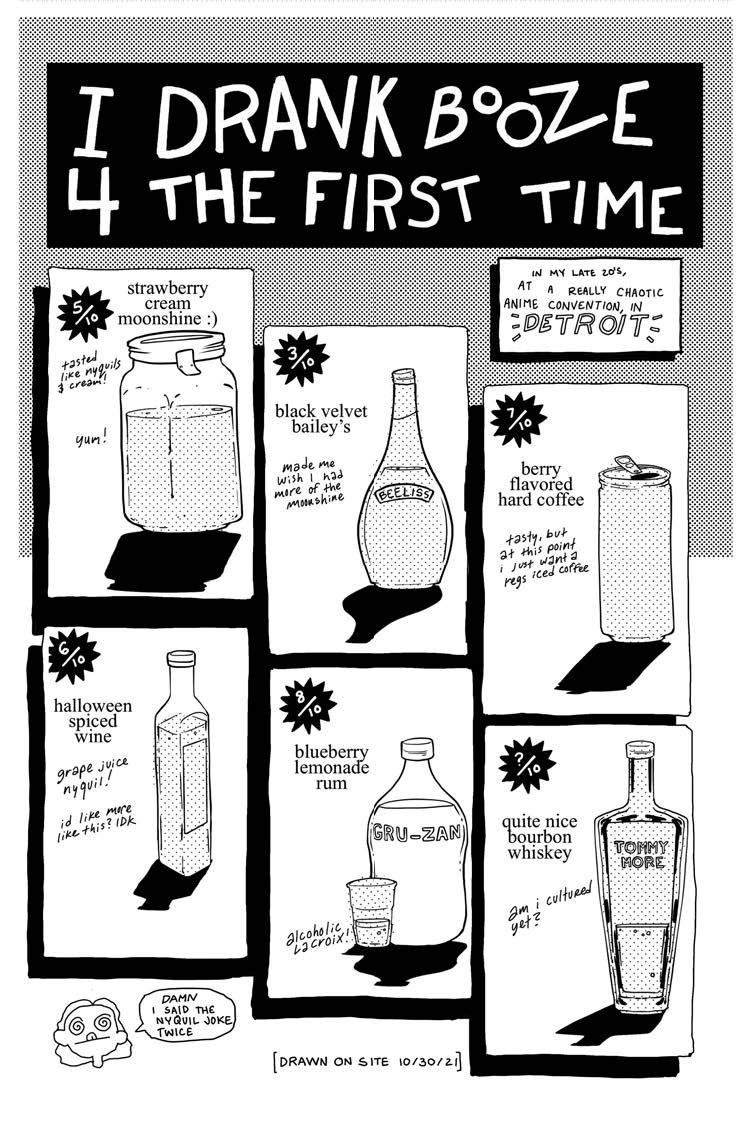 I DRANK BOOZE
4 THE FIRST TIME
IN MY LATE 20'S,
AT A REALLY CHAOTIC
ANIME CONVENTION, IN
DETROIT
5/10
strawberry
cream
moonshine :)
tasted
like nyquils
& cream!
yum!
3/10
black velvet
bailey's
made me
wish i had
more of the
moonshine
BEELISS
7/10
berry
flavored
hard coffee
tasty, but
at this point
i just want a
regs iced coffee
6/10
halloween
spiced
wine
grape juice
nyquil!
id like more
like this? IDK
8/10
blueberry
lemonade
rum
GRU-ZAN
alcoholic
LaCroix!
?/10
quite nice
bourbon
whiskey
am i cultured
yet?
TOMMY
MORE
DAMN
I SAID THE
NYQUIL JOKE
TWICE
[DRAWN ON SITE 10/30/21]